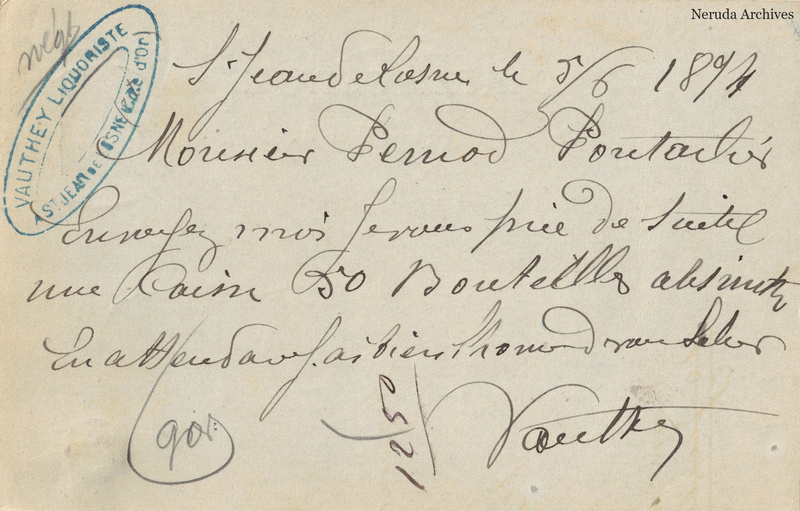 Neruda Archives
négt
VAUTHEY LIQUORISTE
A ST JEAN DE LOSNE (Côte d'Or)
St Jean de Losne le 5/6 1894
Monsieur Pernod Pontarlier
Envoyez moi je vous prie de suite
une Caisse 50 Bouteilles absinthe
En attendant j'ai bien l'honneur de vous Saluer
Vauthey
1250